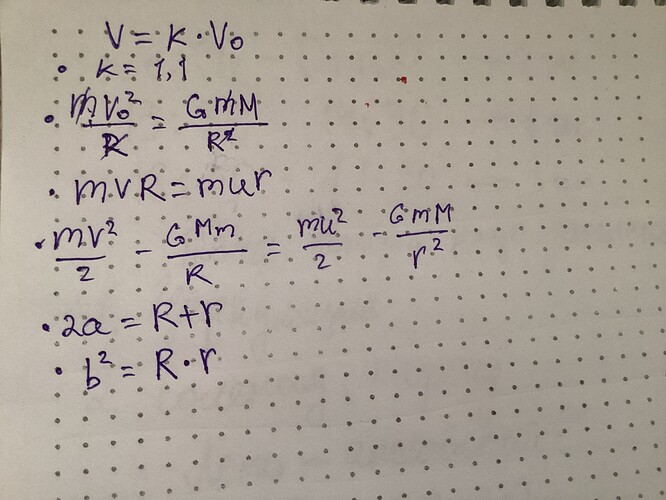 V = k · V₀
• k = 1,1
• mv₀²/R = GmM/R²
• mvR = mur
• mv²/2 - GMm/R = mu²/2 - GmM/r²
• 2a = R+r
• b² = R·r